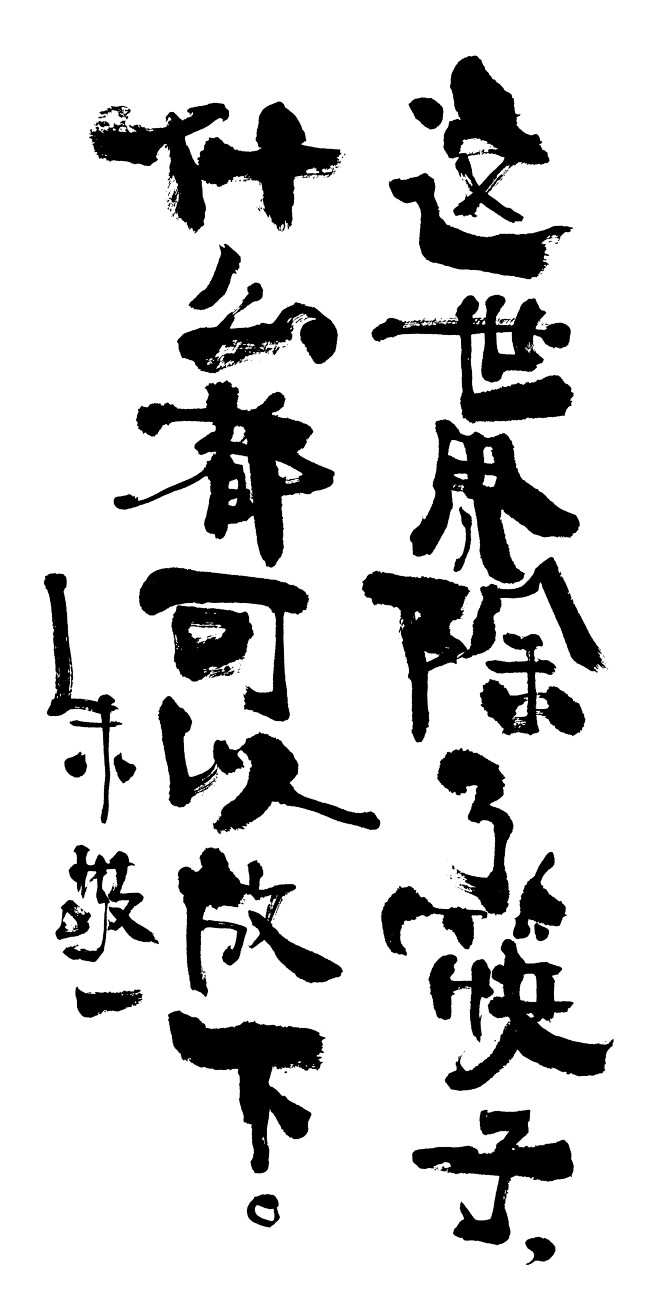 这世界除了筷子，
什么都可以放下。
朱敬一